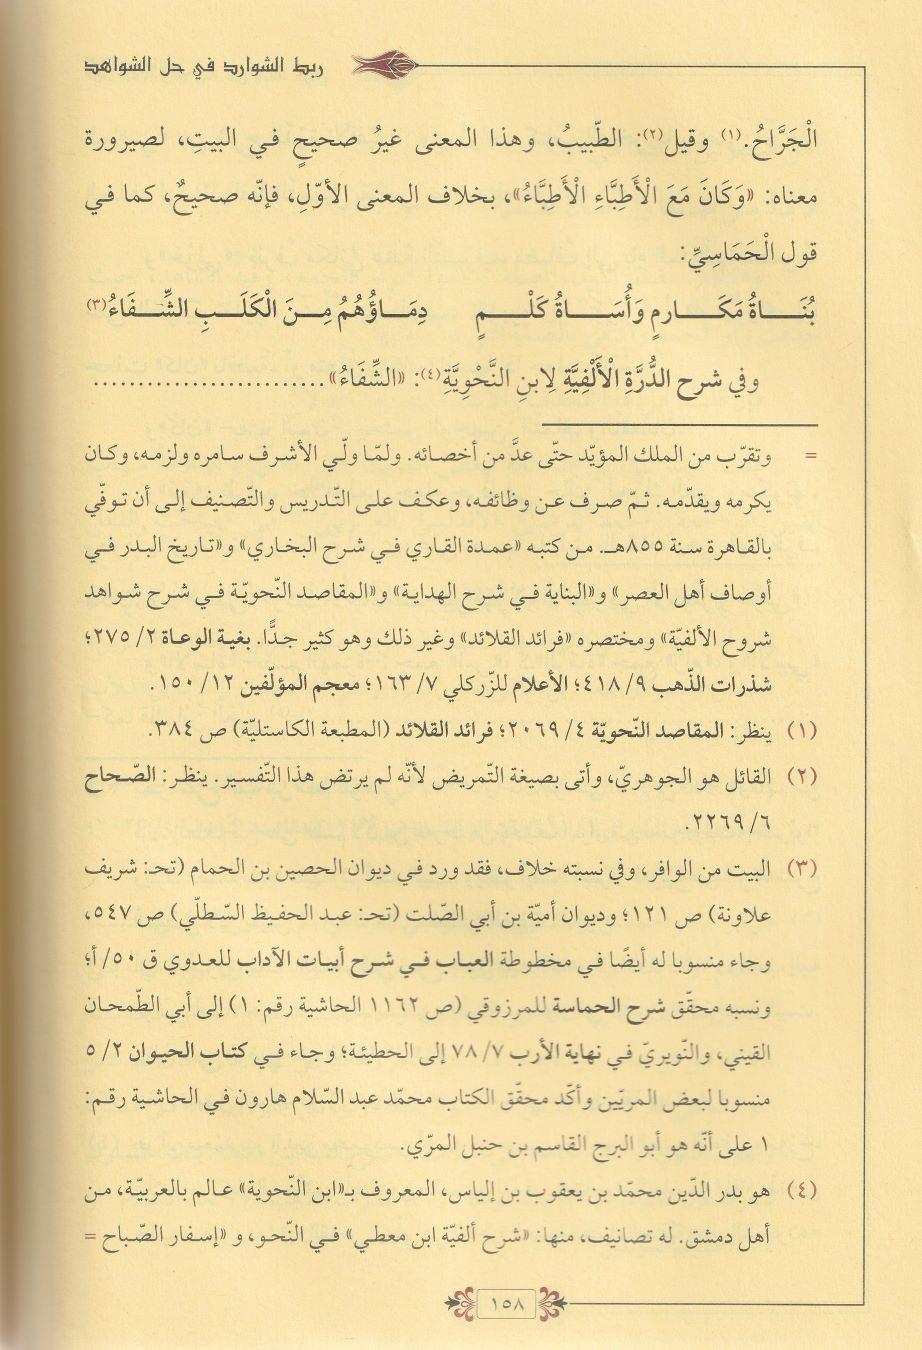 ربط الشوارد في حل الشواهد
الْجَرَّاحُ.(١) وقيل(٢): الطّبيبُ، وهذا المعنى غيرُ صحيحٍ في البيتِ، لصيرورة
معناه: «وَكَانَ مَعَ الْأَطِبَّاءِ الْأَطِبَّاءُ»، بخلاف المعنى الأوّلِ، فإنّه صحيحٌ، كما في
قول الْحَمَاسِيِّ:
بُنَاةُ مَكَارِمٍ وَأُسَاةُ كَلْمٍ دِمَاؤُهُمُ مِنَ الْكَلَبِ الشِّفَاءُ(٣)
وفي شرح الدُّرَّةِ الْأَلْفِيَّةِ لِابنِ النَّحْوِيَّةِ(٤): «الشِّفَاءُ»..........................
= وتقرّب من الملك المؤيّد حتّى عدَّ من أخصائه. ولمّا ولّي الأشرف سامره ولزمه، وكان
يكرمه ويقدّمه. ثمّ صرف عن وظائفه، وعكف على التّدريس والتّصنيف إلى أن توفّي
بالقاهرة سنة ٨٥٥هـ. من كتبه «عمدة القاري في شرح البخاري» و«تاريخ البدر في
أوصاف أهل العصر» و«البناية في شرح الهداية» و«المقاصد النّحويّة في شرح شواهد
شروح الألفيّة» ومختصره «فرائد القلائد» وغير ذلك وهو كثير جدًّا. بغية الوعاة ٢/ ٢٧٥؛
شذرات الذّهب ٩/ ٤١٨؛ الأعلام للزّركلي ٧/ ١٦٣؛ معجم المؤلّفين ١٢/ ١٥٠.
(١) ينظر: المقاصد النّحويّة ٤/ ٢٠٦٩؛ فرائد القلائد (المطبعة الكاستليّة) ص ٣٨٤.
(٢) القائل هو الجوهريّ، وأتى بصيغة التّمريض لأنّه لم يرتض هذا التّفسير. ينظر: الصّحاح
٦/ ٢٢٦٩.
(٣) البيت من الوافر، وفي نسبته خلاف، فقد ورد في ديوان الحصين بن الحمام (تحـ: شريف
علاونة) ص ١٢١؛ وديوان أميّة بن أبي الصّلت (تحـ: عبد الحفيظ السّطلّي) ص ٥٤٧،
وجاء منسوبا له أيضًا في مخطوطة العباب في شرح أبيات الآداب للعدوي ق ٥٠/ أ؛
ونسبه محقّق شرح الحماسة للمرزوقي (ص ١١٦٢ الحاشية رقم: ١) إلى أبي الطّمحان
القيني، والنّويريّ في نهاية الأرب ٧/ ٧٨ إلى الحطيئة؛ وجاء في كتاب الحيوان ٢/ ٥
منسوبا لبعض المريّين وأكّد محقّق الكتاب محمّد عبد السّلام هارون في الحاشية رقم:
١ على أنّه هو أبو البرج القاسم بن حنبل المرّي.
(٤) هو بدر الدّين محمّد بن يعقوب بن إلياس، المعروف بـ«ابن النّحوية» عالم بالعربيّة، من
أهل دمشق. له تصانيف، منها: «شرح ألفيّة ابن معطي» في النّحو، و «إسفار الصّباح =
١٥٨